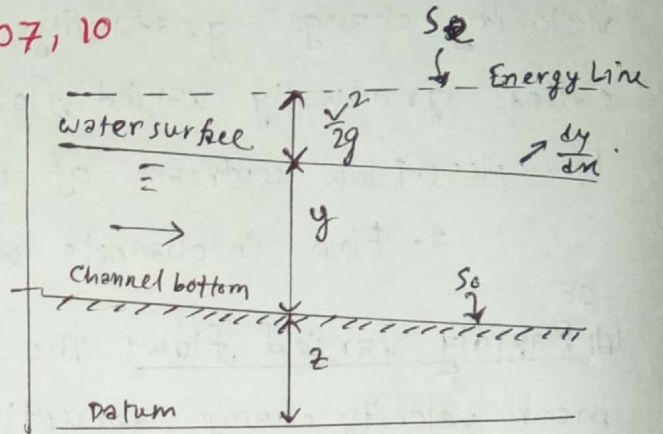 07, 10
Se
Energy Line
v²/2g
water surface
dy/dx
y
Channel bottom
So
z
Datum